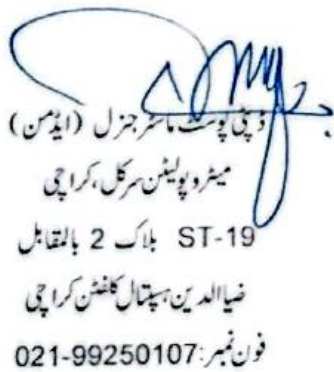 ڈپٹی پوسٹ ماسٹر جنرل (ایڈمن)
میٹروپولیٹن سرکل، کراچی
ST-19 بلاک 2 بالمقابل
ضیاالدین ہسپتال کلفٹن کراچی
فون نمبر: 021-99250107